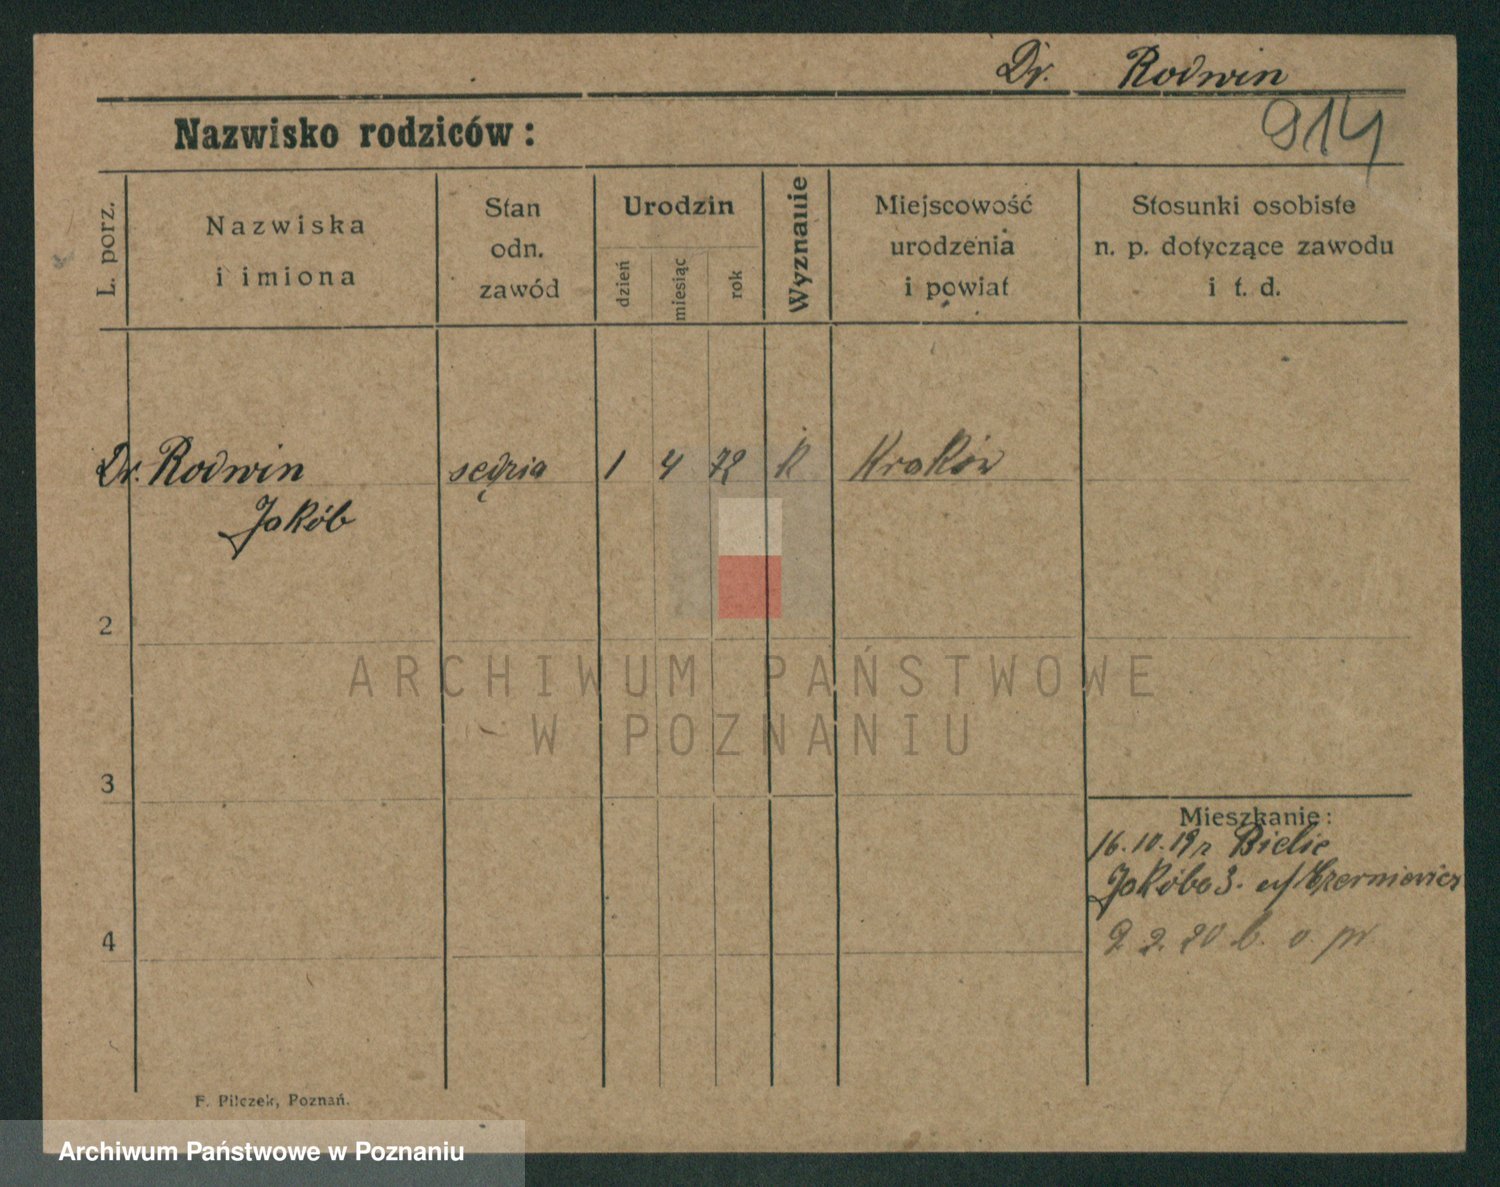 Dr. Rodwin
914
Nazwisko rodziców:
L. porz.
Nazwiska
i imiona
Stan
odn.
zawód
Urodzin
dzień
miesiąc
rok
Wyznanie
Miejscowość
urodzenia
i powiat
Stosunki osobiste
n. p. dotyczące zawodu
i t. d.
Dr. Rodwin sędzia 1 4 72 k Kraków
Jakób
2
3
4
Mieszkanie:
16.10.19 r Bielic
Jakóba 3. Czerniewicz
2 2. 20 b. o. pr
F. Pilczek, Poznań.
ARCHIWUM PAŃSTWOWE
W POZNANIU
Archiwum Państwowe w Poznaniu